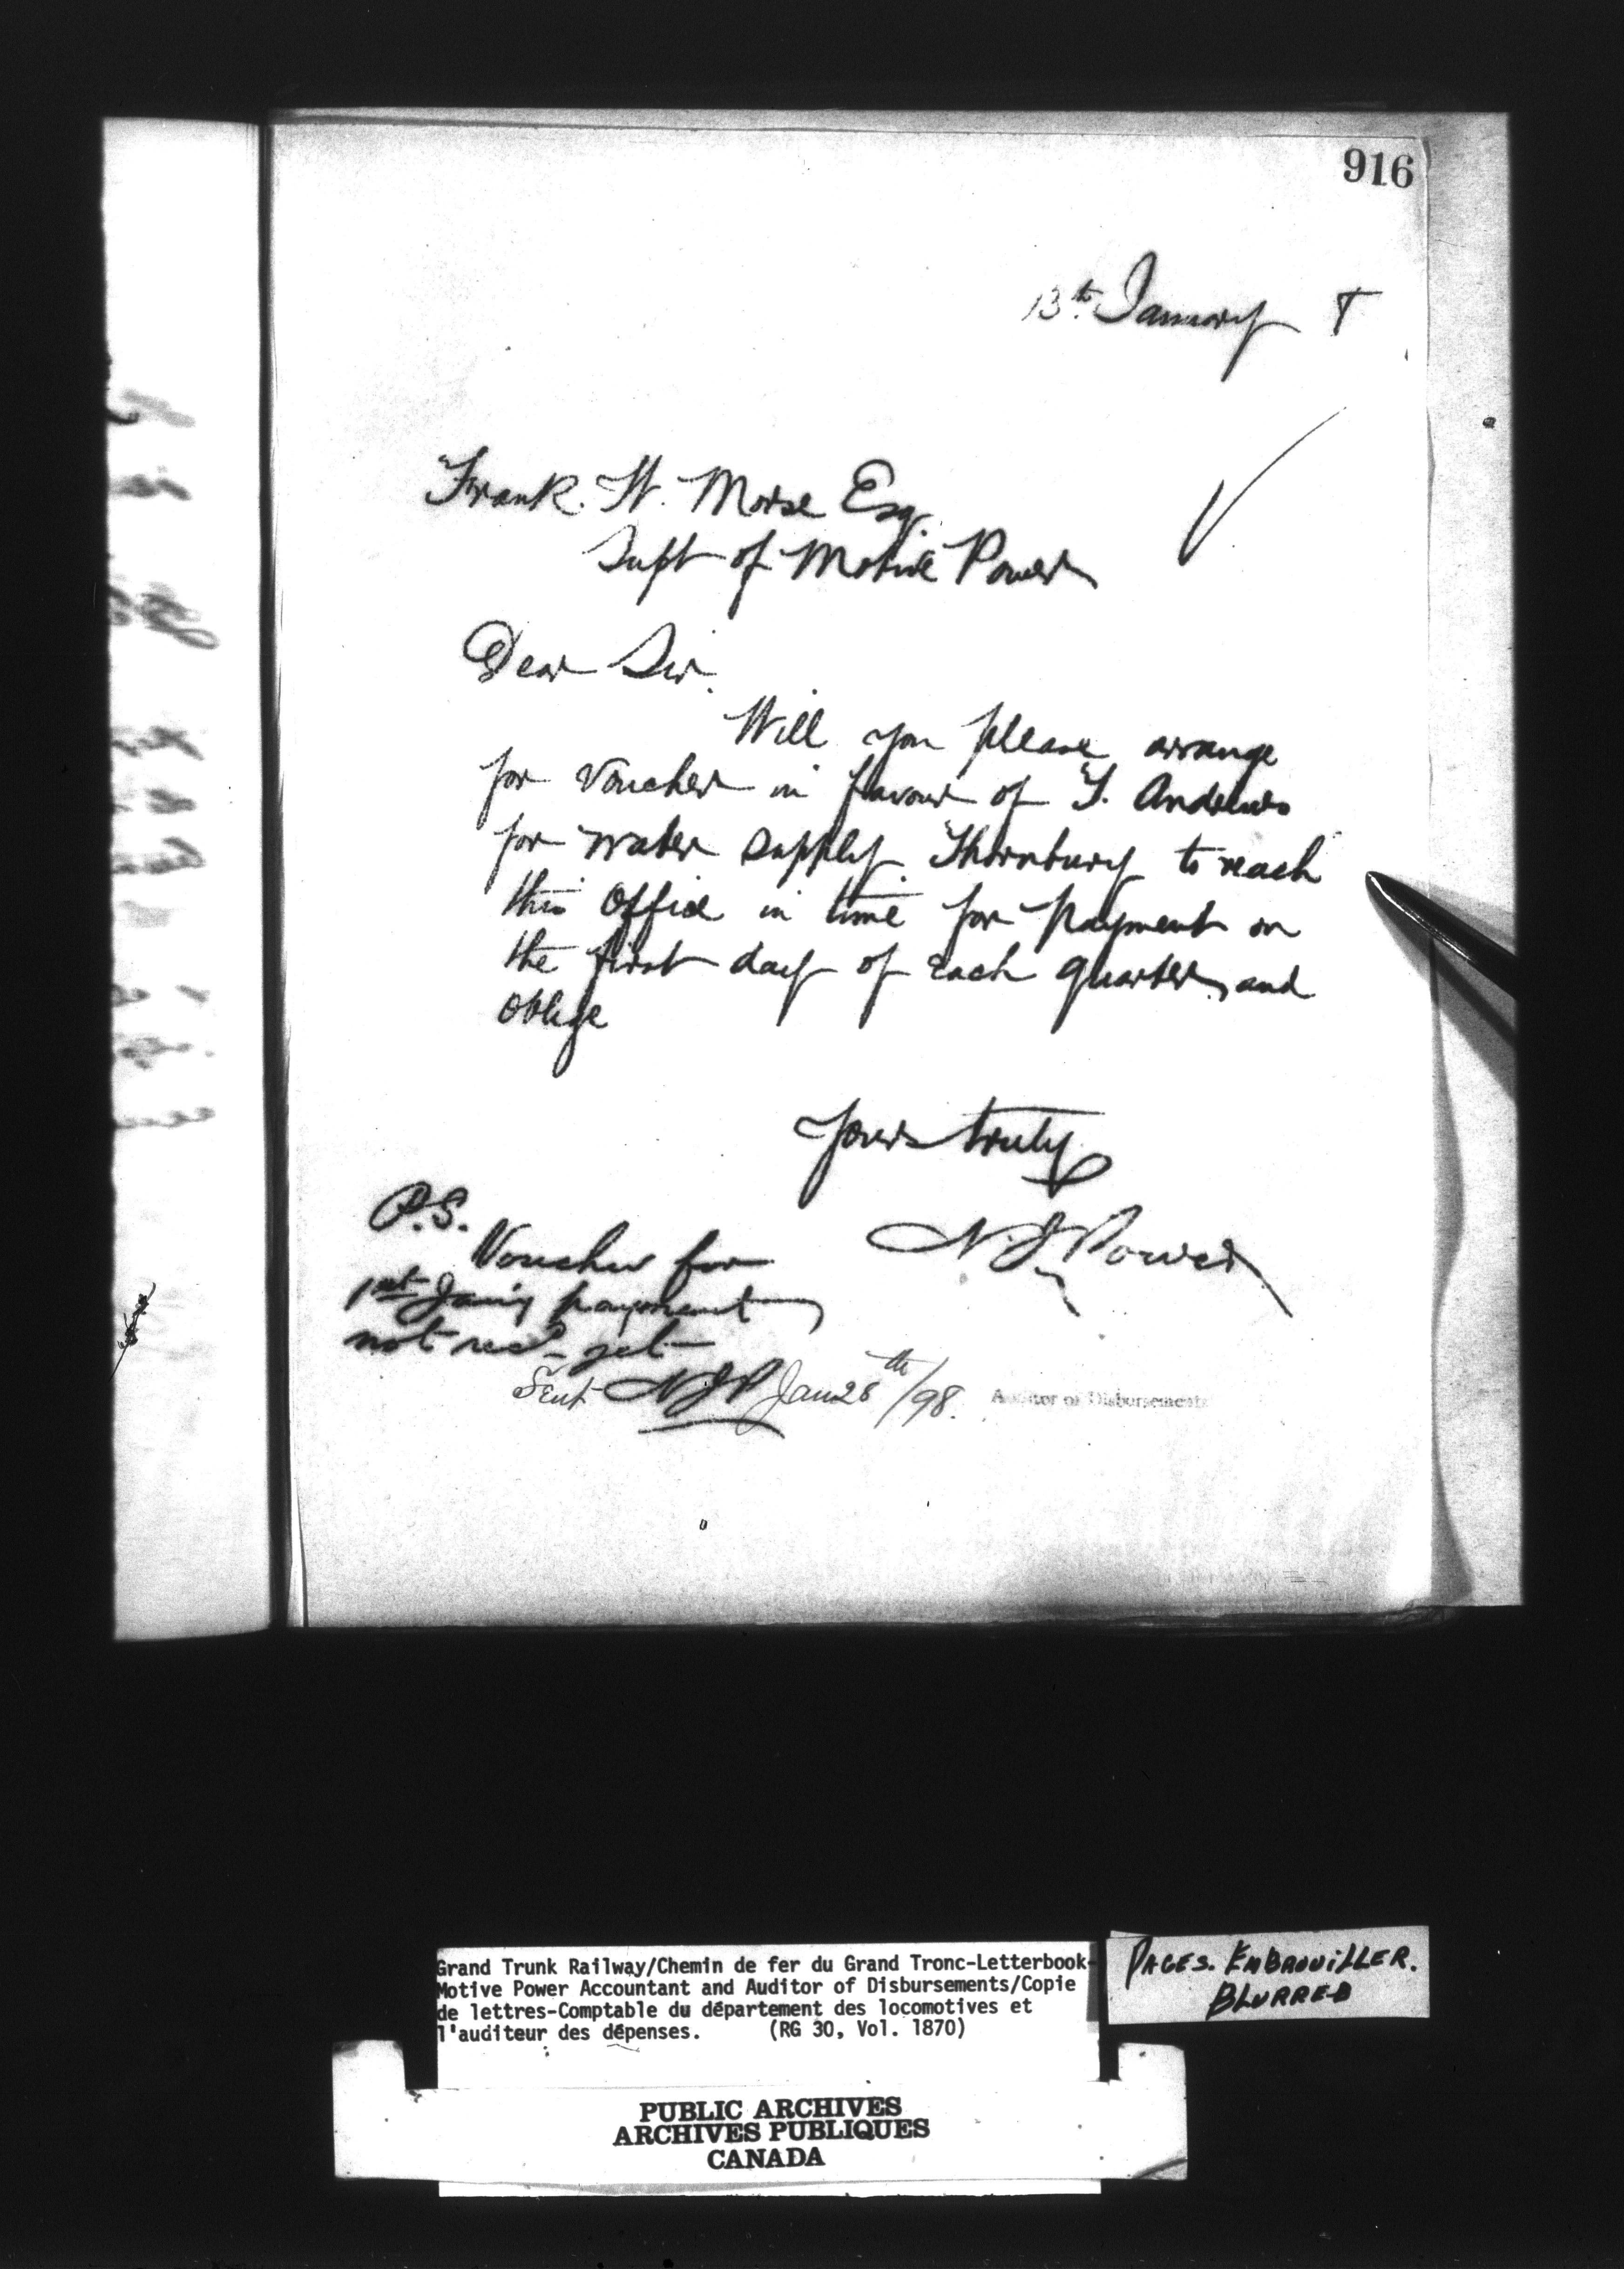 916
13th January 8
Frank. W. Morse Esq.
Supt of Motive Power
Dear Sir.
Will you please arrange
for voucher in favour of T. Andrews
for water supply. Thornbury to reach
this Office in time for payment on
the first day of each quarter, and
oblige
Yours truly
N. J. Power
P.S.
Voucher for
1st Jan'y payment
not rec'd yet
NJP
Sent Jan 28th/98.
Auditor of Disbursements
Grand Trunk Railway/Chemin de fer du Grand Tronc-Letterbook-
Motive Power Accountant and Auditor of Disbursements/Copie
de lettres-Comptable du département des locomotives et
l'auditeur des dépenses. (RG 30, Vol. 1870)
PAGES. EMBROUILLER.
BLURRED
PUBLIC ARCHIVES
ARCHIVES PUBLIQUES
CANADA